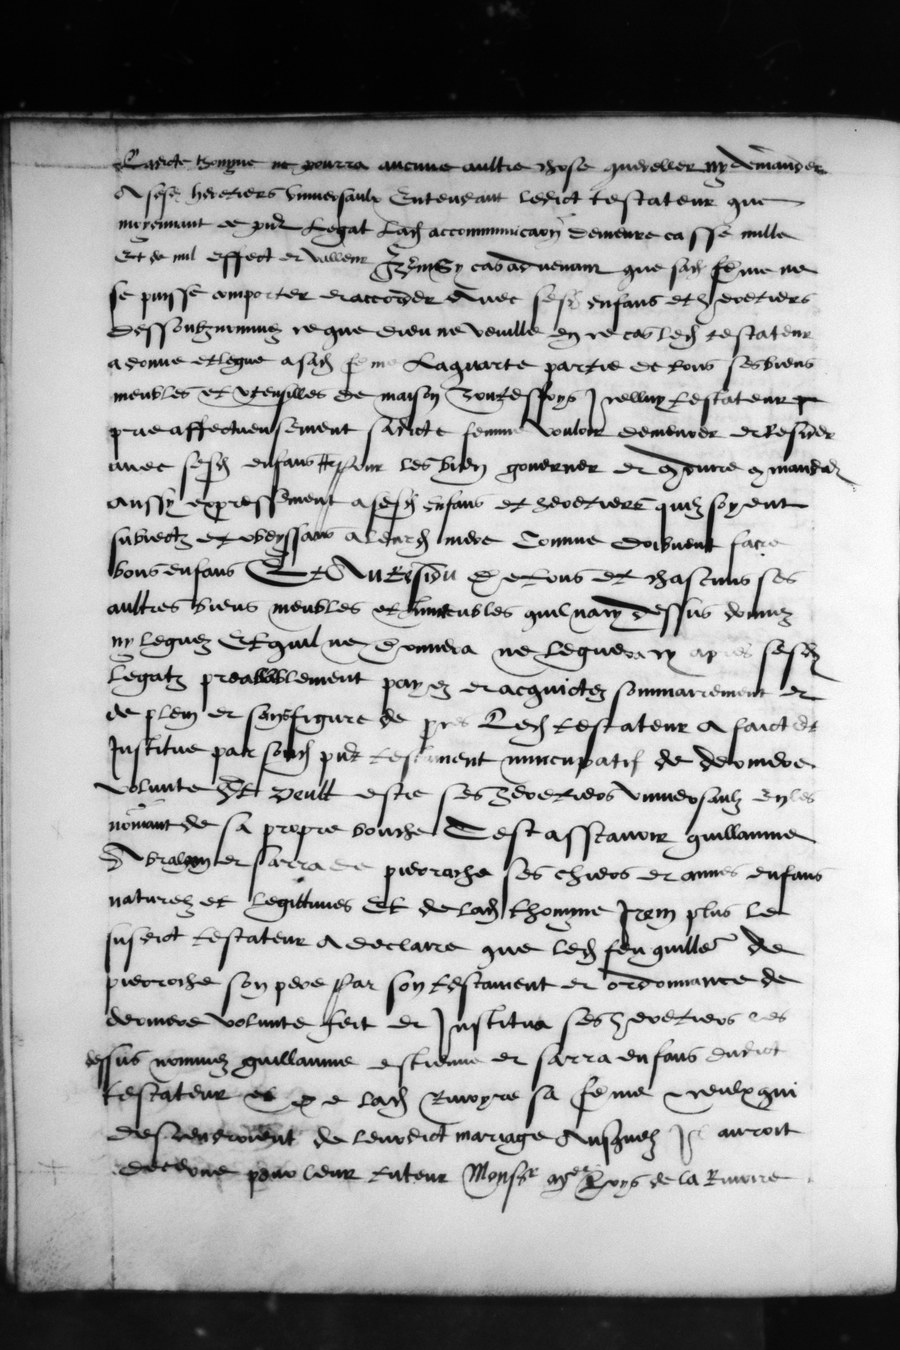 Ladicte thomyne ne pourra aucune aultre chose quereller ny demander
A sesd heretiers universaulx Entendant ledict testateur que
moyennant ce pnt Legat Lad accommunicaon demeure cassé nulle
Et de nul effect et valleur Item Sy cas advenant que sad feme ne
se puisse comporter et accorder Avec sesd enfans et heretiers
dessoubz nommez ce que dieu ne veuille en ce cas led testateur
a donné et legué a sad feme La quarte partie de tous ses biens
meubles et utensilles de maison Touteffoys Icelluy testateur
prie affectueusement sadicte femme vouloir demeurer et Resider
avec sesd enfans pour les bien governer et
aussy expressement a sesd enfans et heretiers quilz soyent
subiectz et obeyssans a leurd mere Comme doibvent faire
bons enfans Et Au Residu de tous et chascuns ses
aultres biens meubles et immeubles quil na cy dessus donnez
ny leguez Et quil ne donnera ne leguera cy apres sesd
legatz preallablement payez et acquictez sommairement et
de plein et sans figure de pres Led testateur A faict et
Institue par soud pnt testament nuncupatif de derniere
volunte Et veult estre ses heretiers universaulx En les
nomant de sa propre bouche Cest asscavoir guillaume
Abraham et sarra de pierroche ses chiers et amés enfans
naturelz et legittimes Et de lad thomyne Item plus le
susdict testateur A declaire que led feu guille de
pierroche son pere Par son testament et ordonnance de
derniere volunte feit et Institua ses heretiers les
dessus nommez guillaume estienne et sarra enfans dudict
testateur et de lad Rivoyre sa feme et ceulx qui
descendroient de leurdict mariage Ausquelz Il auroit
decerne pour leur tuteur Monsr de la Rivoire